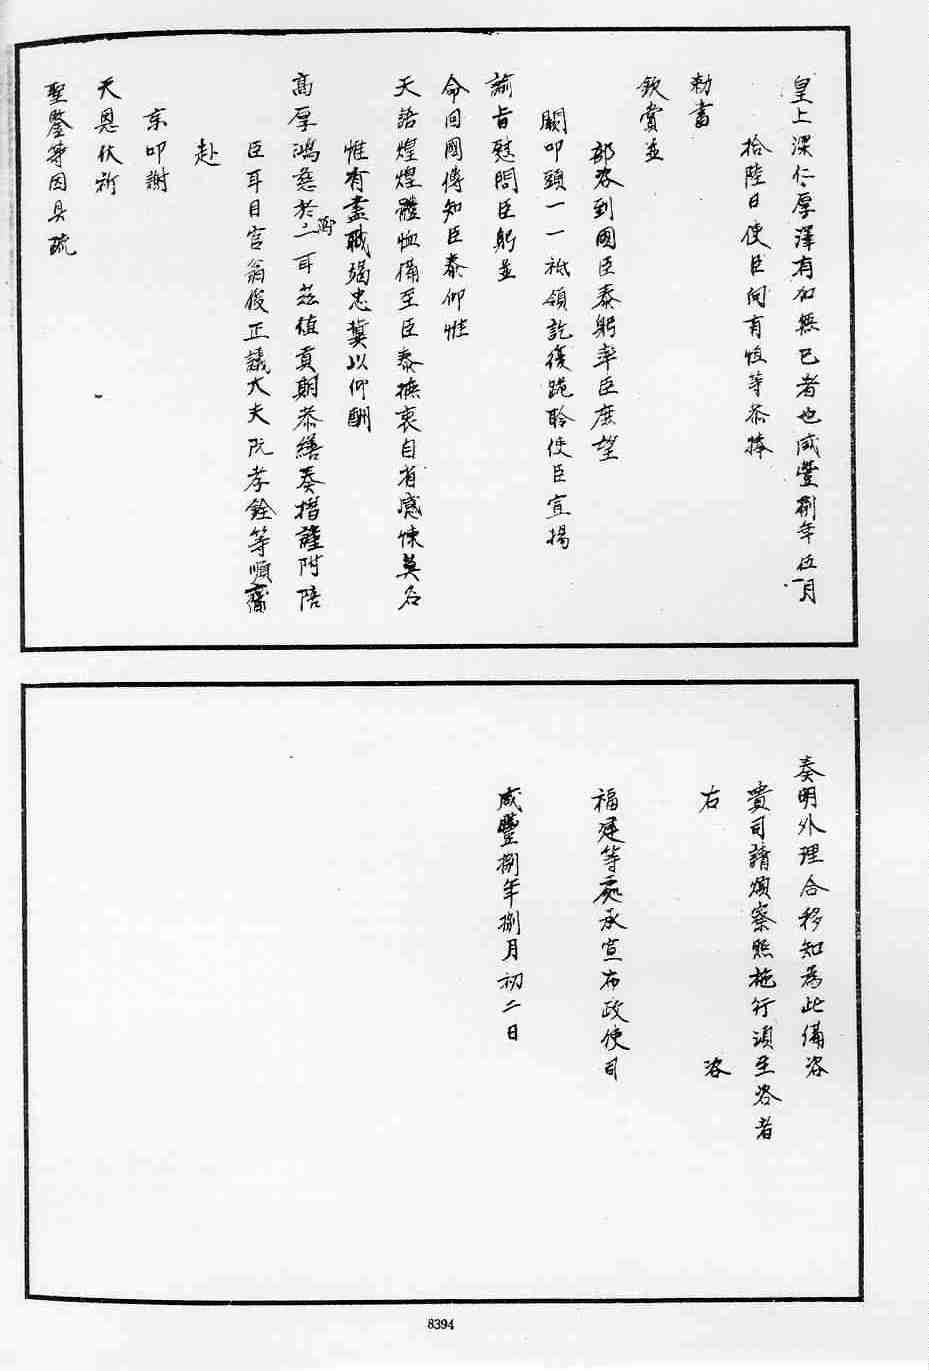 皇上深仁厚澤有加無已者也咸豐捌年伍月
拾陸日使臣向有恆等恭捧
勅書
欽賞並
部咨到國臣泰躬率臣庶望
闕叩頭一一祗領訖復跪聆使臣宣揚
諭旨慰問臣躬並
命回國傳知臣泰仰惟
天語煌煌體恤備至臣泰撫衷自省感悚莫名
惟有盡職竭忠冀以仰酬
高厚鴻慈於万一耳茲值貢期恭繕奏摺謹附陪
臣耳目官翁俊正議大夫阮孝銓等順齎
赴
京叩謝
天恩伏祈
聖鑒等因具疏
奏明外理合移知為此備咨
貴司請煩察照施行須至咨者
右　咨
福建等處承宣布政使司
咸豐捌年捌月初二日
8394